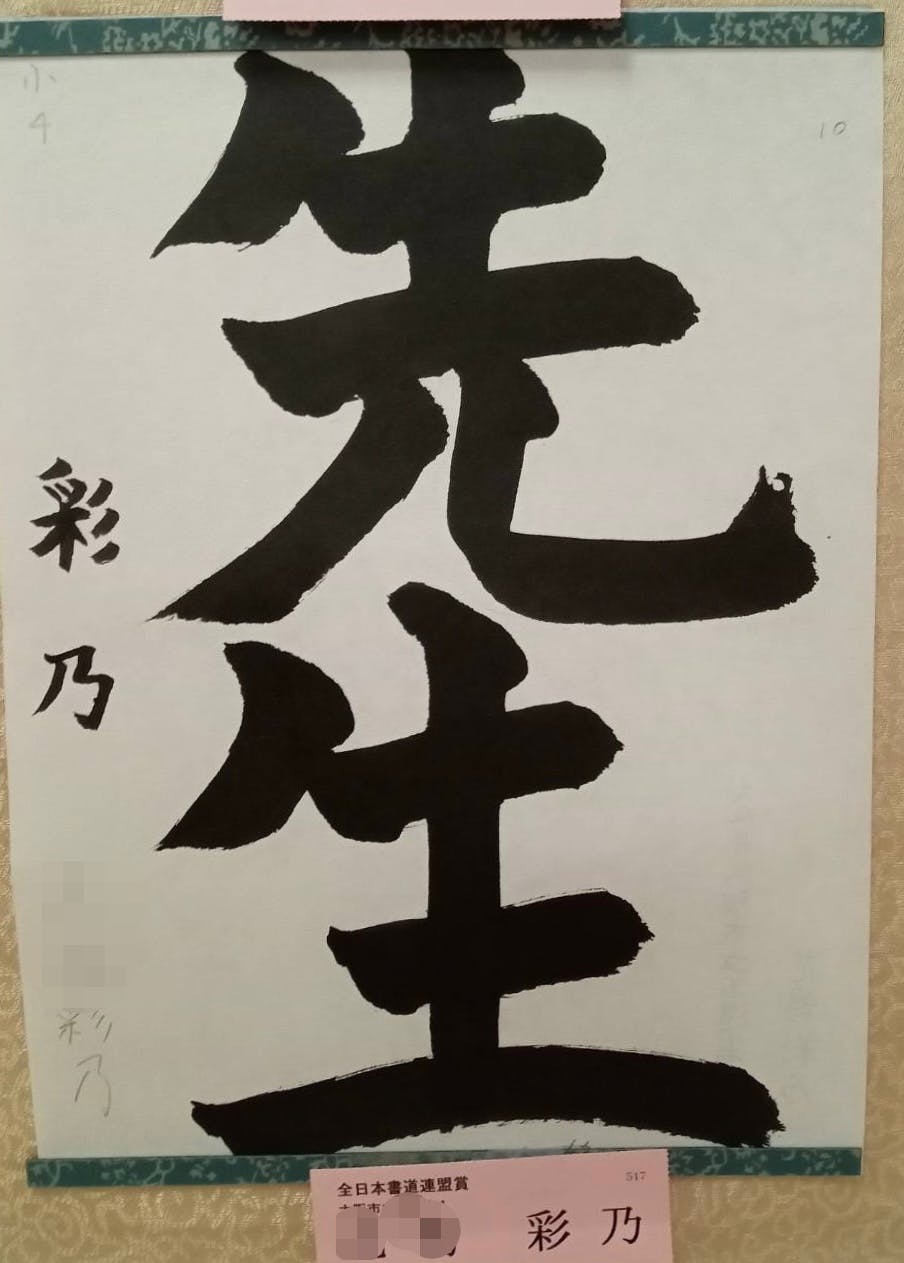 小
4
10
先生
彩乃
彩乃
全日本書道連盟賞
517
彩乃